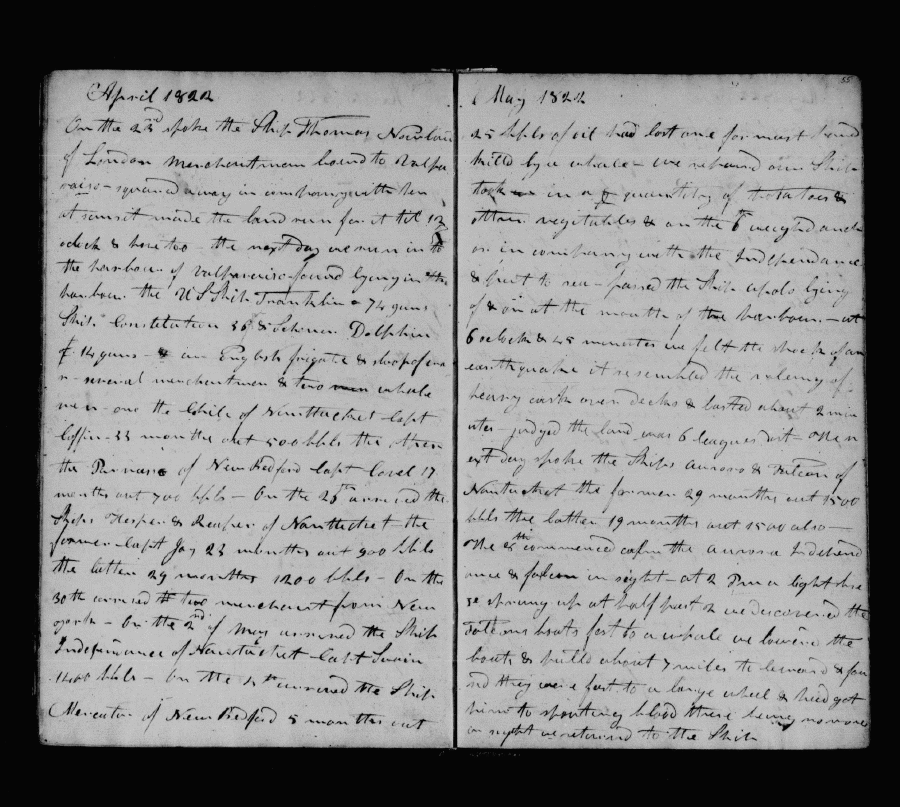 April 1822
On the 23rd spoke the Ship Thomas Nowlan
of London merchantman bound to Valpa
raiso - squared away in company with her
at sunset made the land run for it til 12
oclock & hove too - the next day we run in to
the harbour of Valparaiso found lying in the
harbour the US Ship Franklin - 74 guns
Ship Constitution 36 & Schooner Dolphin
14 guns - & an English frigate & sloop of war
- several merchantmen & two men whale
men - one the Chile of Nantucket Capt
Coffin - 33 months out 500 bbls the other
the Parnaso of New Bedford Capt Covel 17
months out 700 bbls - On the 25th arrived the
Ships Hesper & Reaper of Nantucket the
former Capt Joy 23 months out 900 bbls
the latter 29 months 1200 bbls - On the
30th arrived the two merchant from New
york - On the 2nd of May arrived the Ship
Independance of Nantuckett Capt Swain
1400 bbls - On the 4th arrived the Ship
Mercator of New Bedford 5 months out
55
May 1822
25 bbls of oil had lost one foremast hand
killed by a whale - we repaired our Ship
took in a quantity of potatoes &
other vegitables & on the 6th weighed anch
or in company with the Independance
& put to sea - passed the Ship lying
of & on at the mouth of the harbour - at
6 oclock & 45 minutes we felt the shock of an
earthquake it resembled the roleing of
heavy casks over decks & lasted about 2 min
utes - judged the land was 6 leagues dist - The n
ext day spoke the Ships Aurora & Falcon of
Nantucket the former 29 months out 1500
bbls the latter 19 months out 1500 also -
The 8th commenced calm the Aurora Independ
ance & falcon in sight - at 2 P m a light bree
ze sprung up at half past 2 we discovered the
Falcons boats fast to a whale we lowered the
boats & pulled about 7 miles to leward & fou
nd they were fast to a large whale & had got
him to spouting blood there being no more
in sight we returned to the Ship